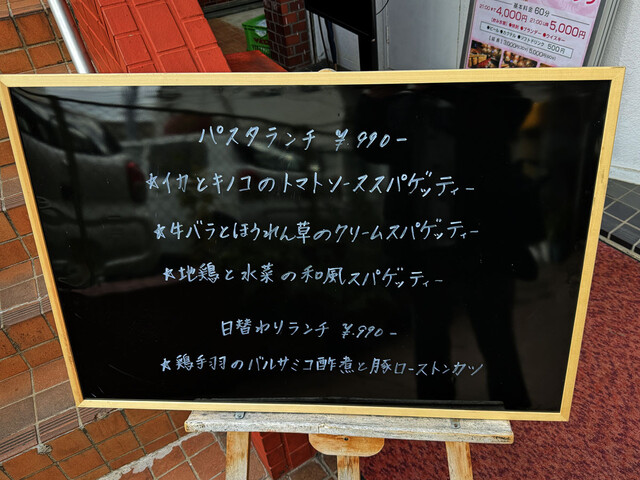 基本料金 60分
4,000円
5,000円
500円
パスタランチ ¥990-
★イカとキノコのトマトソーススパゲッティー
★牛バラとほうれん草のクリームスパゲッティー
★地鶏と水菜の和風スパゲッティー
日替わりランチ ¥.990-
★鶏手羽のバルサミコ酢煮と豚ローストンカツ